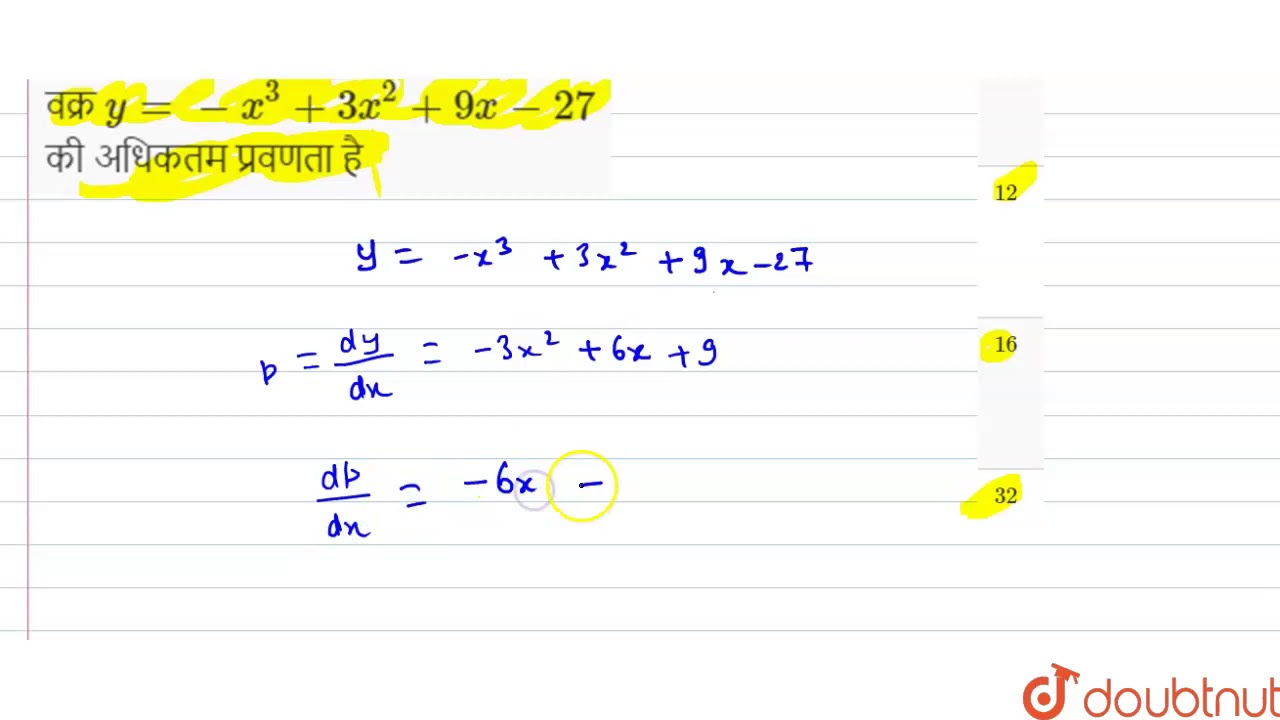 वक्र y = −x³ + 3x² + 9x − 27
की अधिकतम प्रवणता है
12
y = -x³ + 3x² + 9x - 27
16
p = dy/dx = -3x² + 6x + 9
dp/dx = -6x -
32
doubtnut